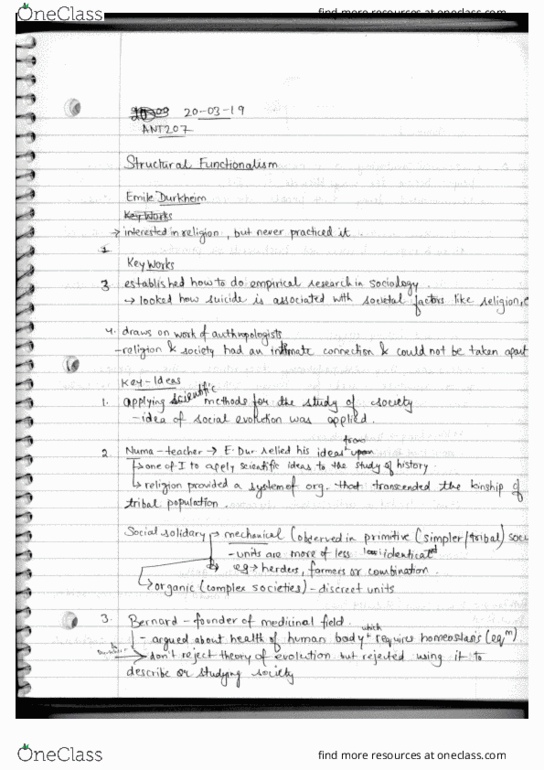 OneClass
find more resources at oneclass.com
20-03-19
ANT207
Structural Functionalism
Emile Durkheim
Key Works
→ interested in religion, but never practiced it
Key Works
3 established how to do empirical research in sociology
→ looked how suicide is associated with societal factors like religion,
4. draws on work of anthropologists
- religion & society had an intimate connection & could not be taken apart
Key-Ideas
1. applying scientific methods for the study of society
- idea of social evolution was applied.
from
2. Numa-teacher → E. Dur relied his ideas upon
→ one of I to apply scientific ideas to the study of history.
→ religion provided a system of org. that transcended the kinship of
tribal population.
Social solidary → mechanical (observed in primitive (simpler/tribal) soci
- units are more of less identical
eg → herders, farmers or combination.
→ organic (complex societies) - discreet units
3. Bernard - founder of medicinal field.
which
- argued about health of human body requires homeostasis (eqm).
→ don't reject theory of evolution but rejected using it to
describe or studying society
OneClass
find more resources at oneclass.com